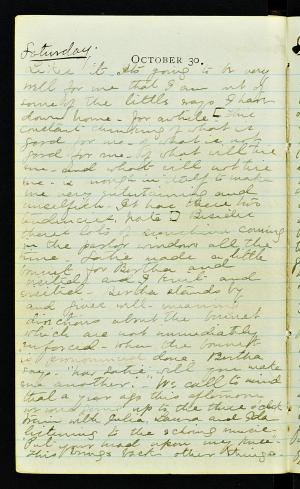 Saturday.
OCTOBER 30.
Like it. Its going to be very
well for me that I am out of
some of the little ways I have
down home - for awhile - the
constant thinking of what is
good for me - of what is not
good for me - of what will tire
me - and what will not tire
me - is in itself to make
me and
unselfish. It has these two
tendencies, note Besides
theres lots of sunshine coming
in the parlor windows all the
time. Satie made a little
bonnet for Bertha and
I knit and
crochet - Bertha stands by
and gives well-meaning
directions about the bonnet
which are not immediately
enforced - when the bonnet
is pronounced done, Bertha
says - "now Satie will you make
me another." We call to mind
that a year ago this afternoon
we were going up to the three o'clock
train with Julia, Laura and Ida
listening to the echoing music.
Put your head upon my knee -
This brings back other things.